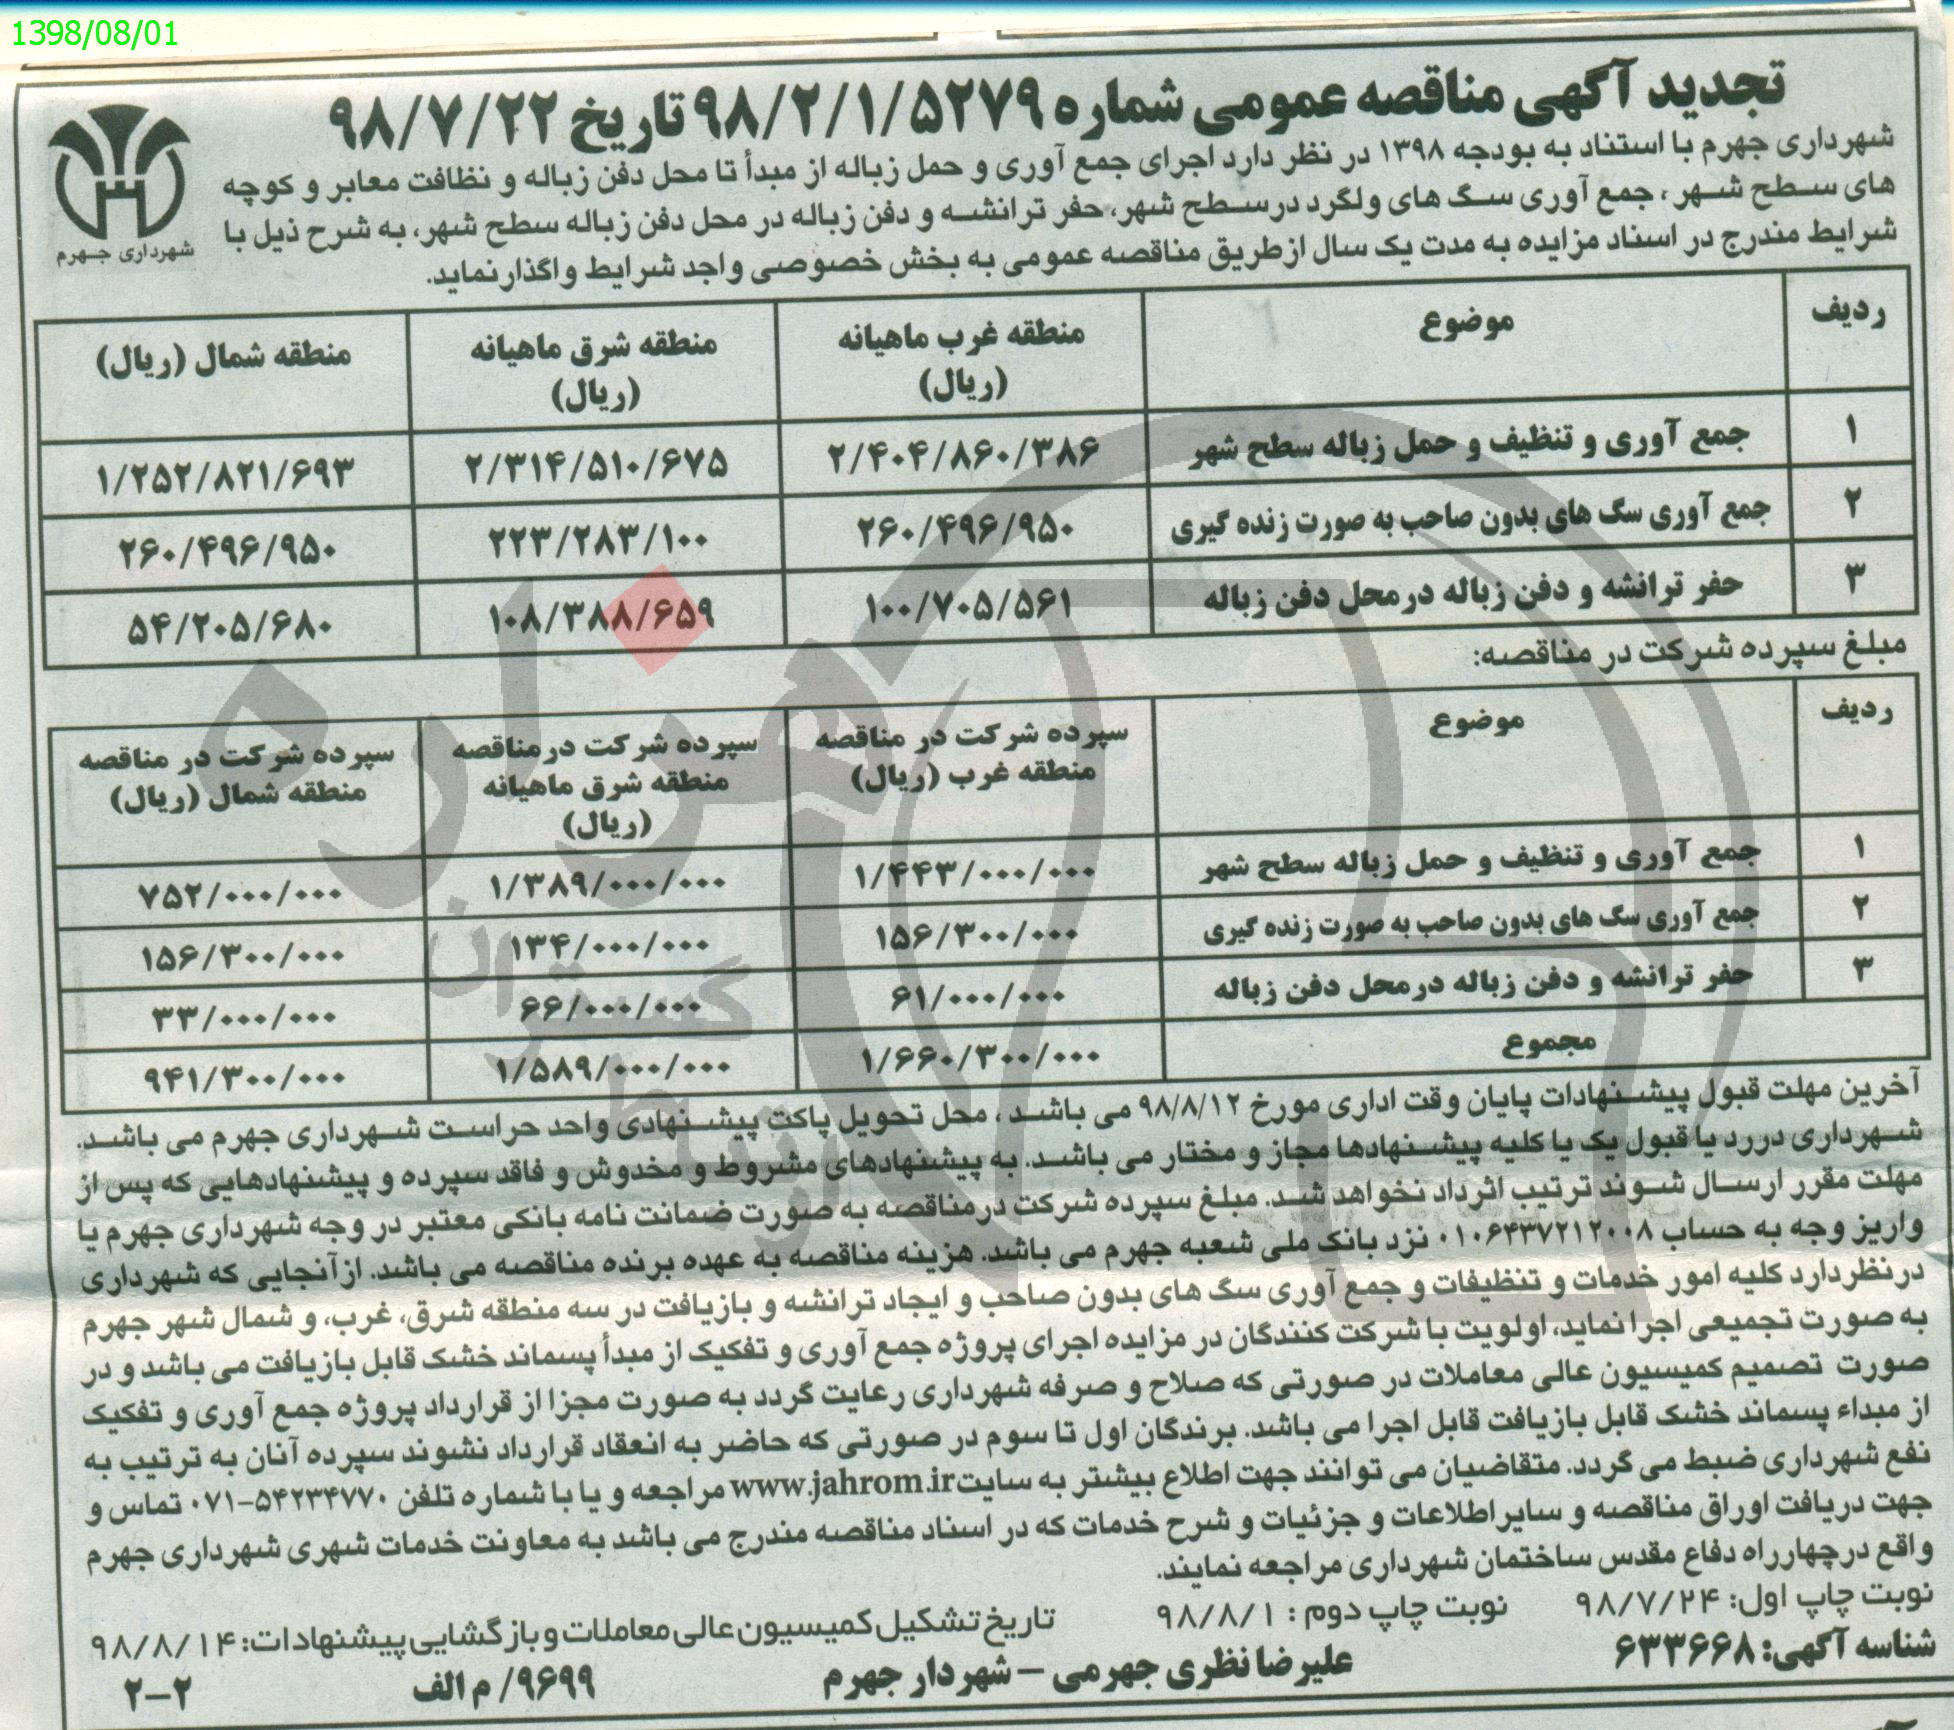 1398/08/01
تجدید آگهی مناقصه عمومی شماره ۹۸/۲/۱/۵۲۷۹ تاریخ ۹۸/۷/۲۲
شهرداری جهرم
شهرداری جهرم با استناد به بودجه ۱۳۹۸ در نظر دارد اجرای جمع آوری و حمل زباله از مبدأ تا محل دفن زباله و نظافت معابر و کوچه
های سطح شهر، جمع آوری سگ های ولگرد درسطح شهر، حفر ترانشه و دفن زباله در محل دفن زباله سطح شهر، به شرح ذیل با
شرایط مندرج در اسناد مزایده به مدت یک سال ازطریق مناقصه عمومی به بخش خصوصی واجد شرایط واگذارنماید.
ردیف موضوع منطقه غرب ماهیانه (ریال) منطقه شرق ماهیانه (ریال) منطقه شمال (ریال)
۱ جمع آوری و تنظیف و حمل زباله سطح شهر ۲/۴۰۴/۸۶۰/۳۸۶ ۲/۳۱۴/۵۱۰/۶۷۵ ۱/۲۵۲/۸۲۱/۶۹۳
۲ جمع آوری سگ های بدون صاحب به صورت زنده گیری ۲۶۰/۴۹۶/۹۵۰ ۲۲۳/۲۸۳/۱۰۰ ۲۶۰/۴۹۶/۹۵۰
۳ حفر ترانشه و دفن زباله درمحل دفن زباله ۱۰۰/۷۰۵/۵۶۱ ۱۰۸/۳۸۸/۶۵۹ ۵۴/۲۰۵/۶۸۰
مبلغ سپرده شرکت در مناقصه:
ردیف موضوع سپرده شرکت در مناقصه منطقه غرب (ریال) سپرده شرکت درمناقصه منطقه شرق ماهیانه (ریال) سپرده شرکت در مناقصه منطقه شمال (ریال)
۱ جمع آوری و تنظیف و حمل زباله سطح شهر ۱/۴۴۳/۰۰۰/۰۰۰ ۱/۳۸۹/۰۰۰/۰۰۰ ۷۵۲/۰۰۰/۰۰۰
۲ جمع آوری سگ های بدون صاحب به صورت زنده گیری ۱۵۶/۳۰۰/۰۰۰ ۱۳۴/۰۰۰/۰۰۰ ۱۵۶/۳۰۰/۰۰۰
۳ حفر ترانشه و دفن زباله درمحل دفن زباله ۶۱/۰۰۰/۰۰۰ ۶۶/۰۰۰/۰۰۰ ۳۳/۰۰۰/۰۰۰
مجموع ۱/۶۶۰/۳۰۰/۰۰۰ ۱/۵۸۹/۰۰۰/۰۰۰ ۹۴۱/۳۰۰/۰۰۰
آخرین مهلت قبول پیشنهادات پایان وقت اداری مورخ ۹۸/۸/۱۲ می باشد، محل تحویل پاکت پیشنهادی واحد حراست شهرداری جهرم می باشد.
شهرداری دررد یا قبول یک یا کلیه پیشنهادها مجاز و مختار می باشد. به پیشنهادهای مشروط و مخدوش و فاقد سپرده و پیشنهادهایی که پس از
مهلت مقرر ارسال شوند ترتیب اثرداد نخواهد شد. مبلغ سپرده شرکت درمناقصه به صورت ضمانت نامه بانکی معتبر در وجه شهرداری جهرم یا
واریز وجه به حساب ۰۱۰۶۴۳۷۲۱۲۰۰۸ نزد بانک ملی شعبه جهرم می باشد. هزینه مناقصه به عهده برنده مناقصه می باشد. ازآنجایی که شهرداری
درنظردارد کلیه امور خدمات و تنظیفات و جمع آوری سگ های بدون صاحب و ایجاد ترانشه و بازیافت در سه منطقه شرق، غرب، و شمال شهر جهرم
به صورت تجمیعی اجرا نماید، اولویت با شرکت کنندگان در مزایده اجرای پروژه جمع آوری و تفکیک از مبدأ پسماند خشک قابل بازیافت می باشد و در
صورت تصمیم کمیسیون عالی معاملات در صورتی که صلاح و صرفه شهرداری رعایت گردد به صورت مجزا از قرارداد پروژه جمع آوری و تفکیک
از مبداء پسماند خشک قابل بازیافت قابل اجرا می باشد. برندگان اول تا سوم در صورتی که حاضر به انعقاد قرارداد نشوند سپرده آنان به ترتیب به
نفع شهرداری ضبط می گردد. متقاضیان می توانند جهت اطلاع بیشتر به سایت www.jahrom.ir مراجعه و یا با شماره تلفن ۵۴۲۳۴۷۷۰-۰۷۱ تماس و
جهت دریافت اوراق مناقصه و سایراطلاعات و جزئیات و شرح خدمات که در اسناد مناقصه مندرج می باشد به معاونت خدمات شهری شهرداری جهرم
واقع درچهارراه دفاع مقدس ساختمان شهرداری مراجعه نمایند.
نوبت چاپ اول: ۹۸/۷/۲۴ نوبت چاپ دوم: ۹۸/۸/۱ تاریخ تشکیل کمیسیون عالی معاملات و بازگشایی پیشنهادات: ۹۸/۸/۱۴
شناسه آگهی: ۶۳۳۶۶۸ علیرضا نظری جهرمی – شهردار جهرم ۹۶۹۹/ م الف ۲-۲